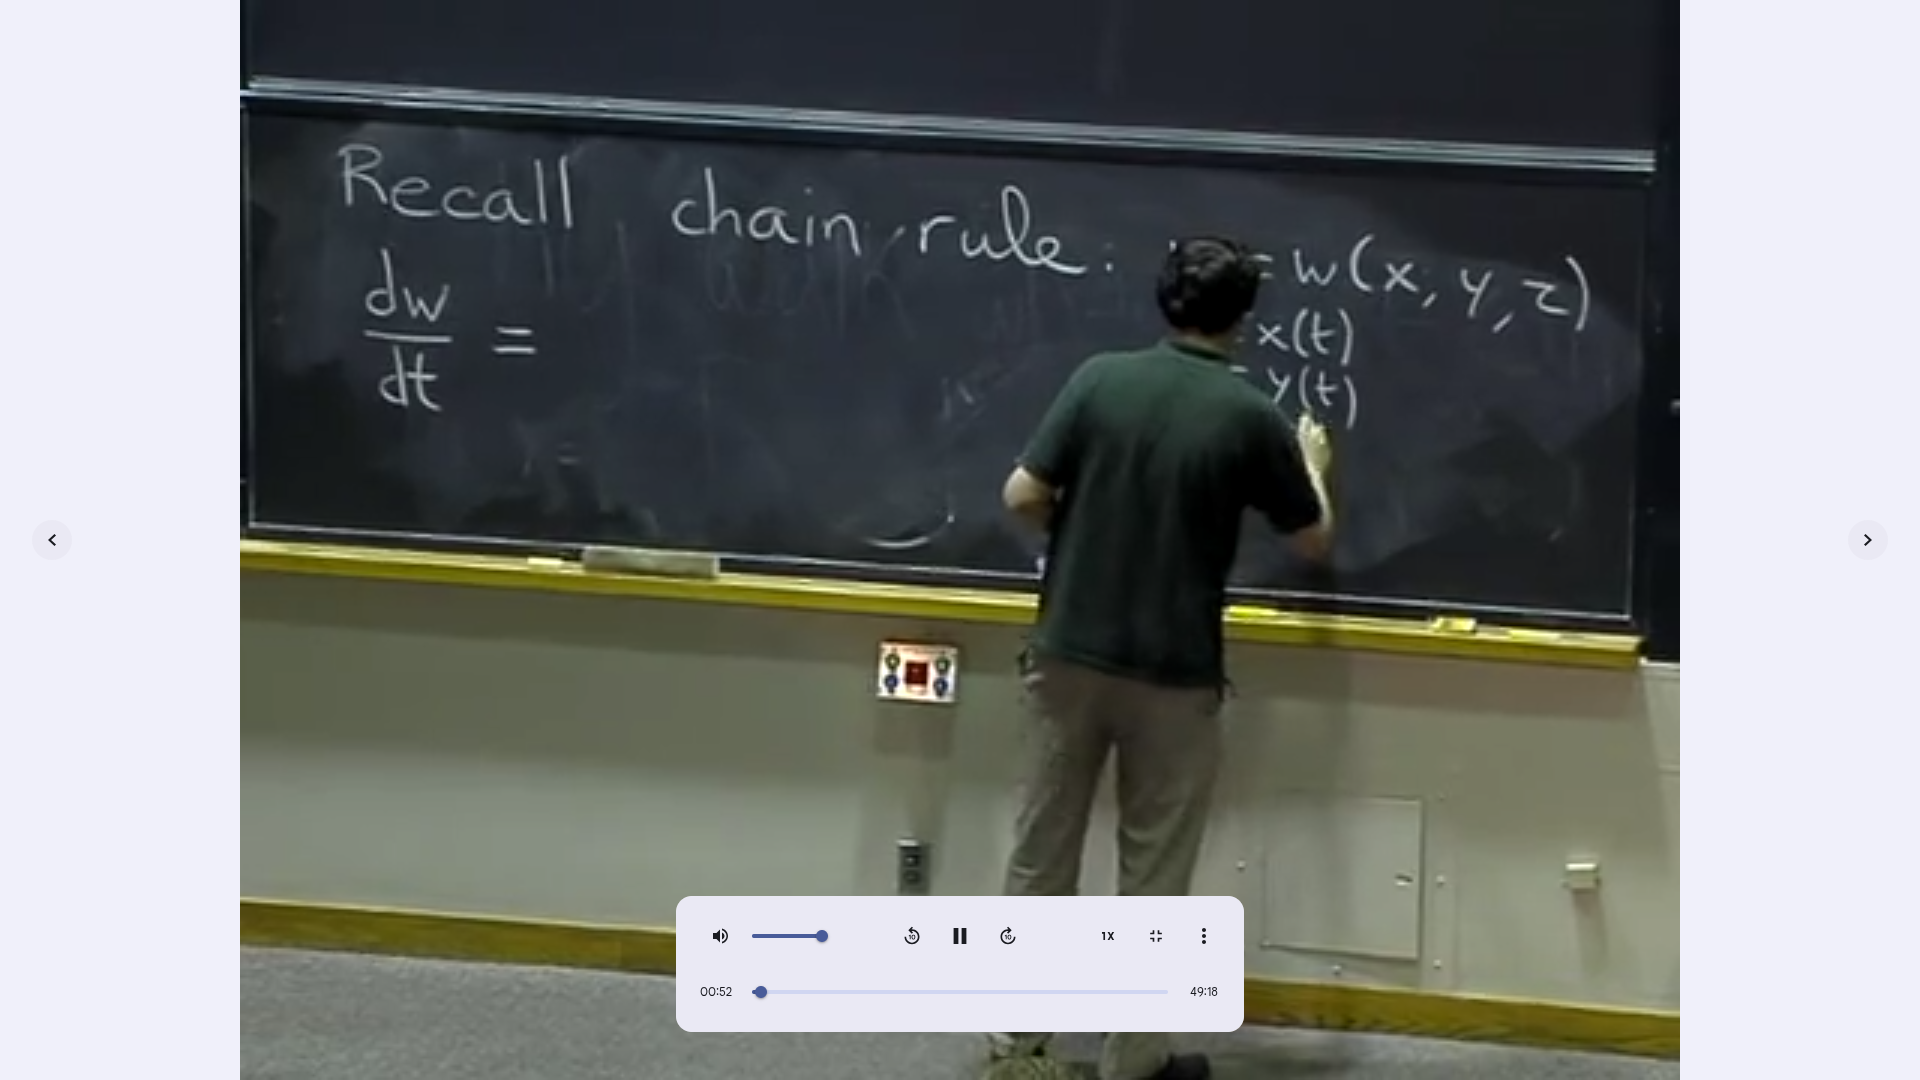 Recall chain rule: = w(x, y, z)
= x(t)
= y(t)
dw
dt =
1X
00:52
49:18